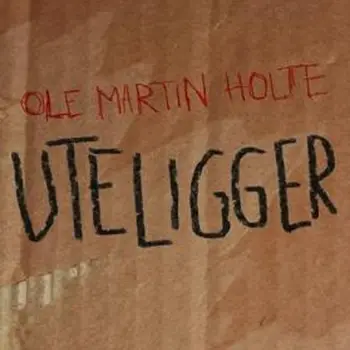 OLE MARTIN HOLTE
UTELIGGER